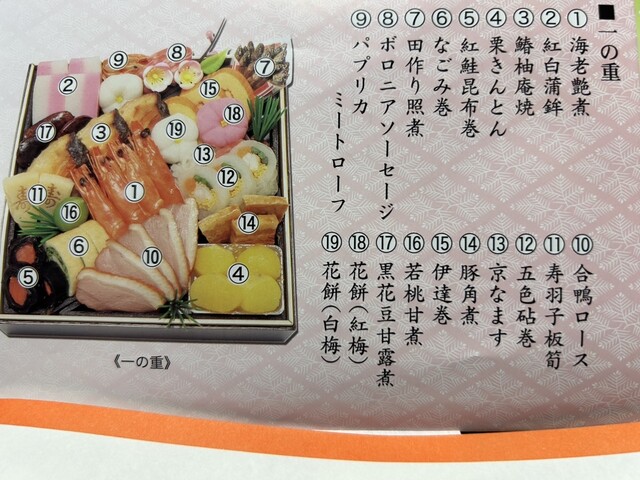 ■一の重
①海老艶煮
②紅白蒲鉾
③鰆柚庵焼
④栗きんとん
⑤紅鮭昆布巻
⑥なごみ巻
⑦田作り照煮
⑧ボロニアソーセージ
⑨パプリカ
ミートローフ
⑩合鴨ロース
⑪寿羽子板筍
⑫五色砧巻
⑬京なます
⑭豚角煮
⑮伊達巻
⑯若桃甘煮
⑰黒花豆甘露煮
⑱花餅(紅梅)
⑲花餅(白梅)
⑨
⑧
⑦
②
⑮
⑱
⑰
③
⑲
⑬
⑫
⑪
①
⑯
⑭
⑥
⑩
⑤
④
寿
《一の重》